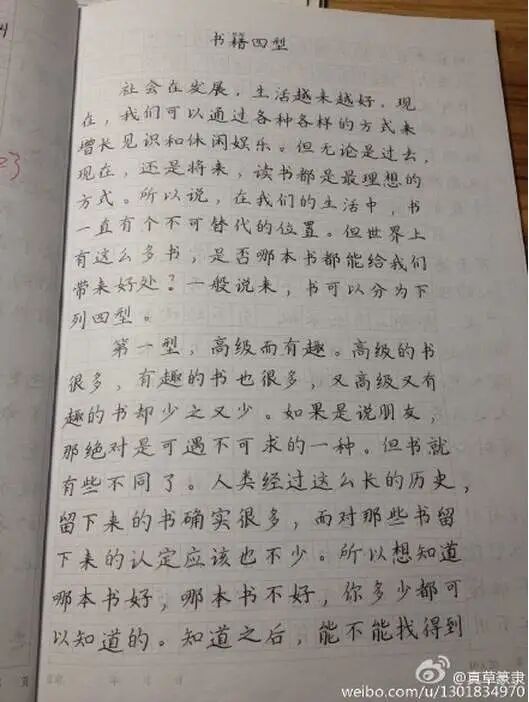 书籍四型
社会在发展，生活越来越好，现
在，我们可以通过各种各样的方式来
增长见识和休闲娱乐。但无论是过去，
现在，还是将来，读书都是最理想的
方式。所以说，在我们的生活中，书
一直有个不可替代的位置。但世界上
有这么多书，是否哪本书都能给我们
带来好处？一般说来，书可以分为下
列四型。
第一型，高级而有趣。高级的书
很多，有趣的书也很多，又高级又有
趣的书却少之又少。如果是说朋友，
那绝对是可遇不可求的一种。但书就
有些不同了。人类经过这么长的历史，
留下来的书确实很多，而对那些书留
下来的认定应该也不少。所以想知道
哪本书好，哪本书不好，你多少都可
以知道的。知道之后，能不能找得到
@真草篆隶
weibo.com/u/1301834970